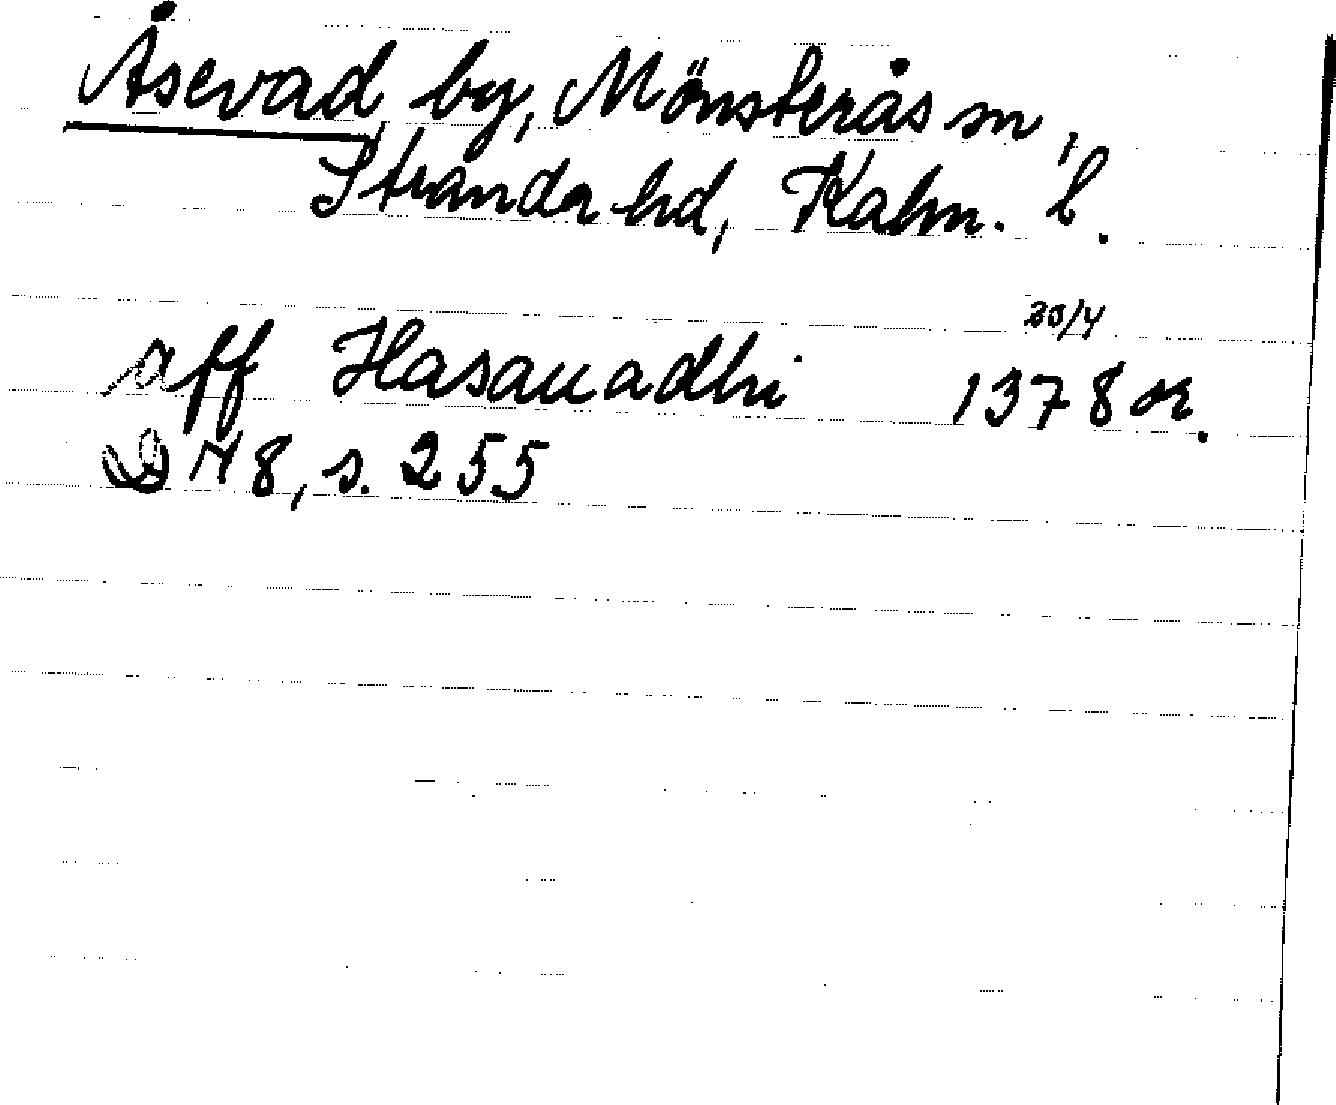 Åsevad by, Mönsterås sn,
Stranda hd, Kalm. l.
20/4
aff Hasauadhi 1378 or.
D 78, s. 255